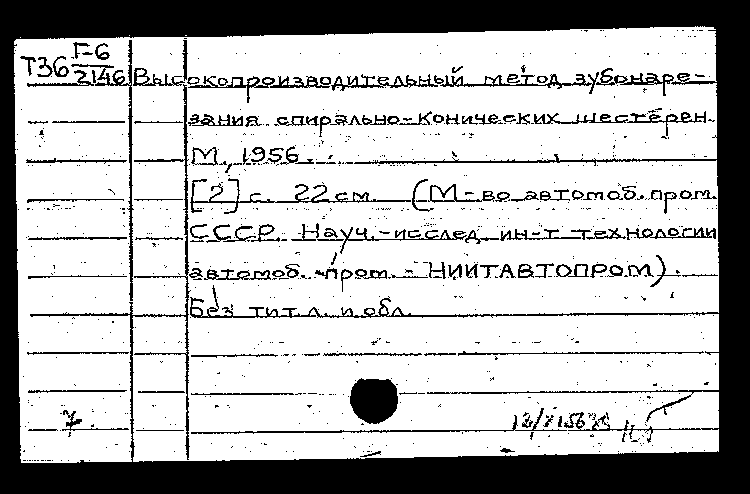 Т36 Г-6/2146 Высокопроизводительный метод зубонаре-
зания спирально-конических шестерен.
М., 1956.
[2] с. 22 см. (М-во автомоб. пром.
СССР. Науч.-исслед. ин-т технологии
автомоб. пром. - НИИТАВТОПРОМ).
Без тит. л. и обл.
7.